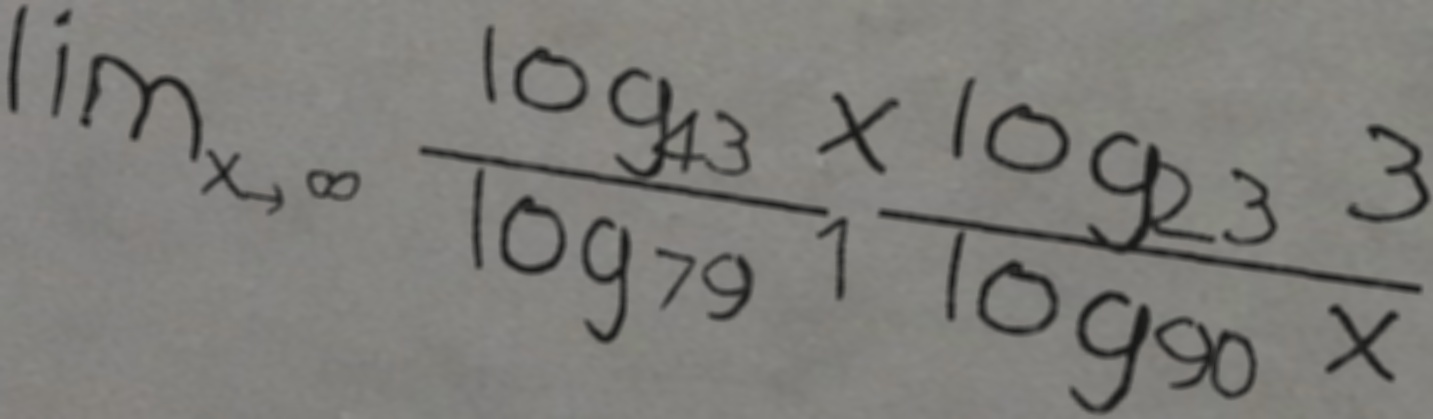 lim_{x→∞} \frac{log_{43} x}{log_{79} 1} \frac{log_{23} 3}{log_{90} x}